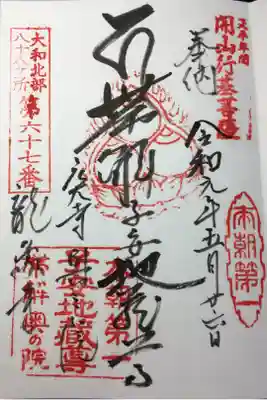 天平年間
開山行基菩薩
奉拝
令和元年五月廿六日
本朝第一
帯解子安地蔵尊
大和北部
八十八ヶ所第六十七番
龍象寺
本朝第一
子安地蔵尊
帯解奥の院